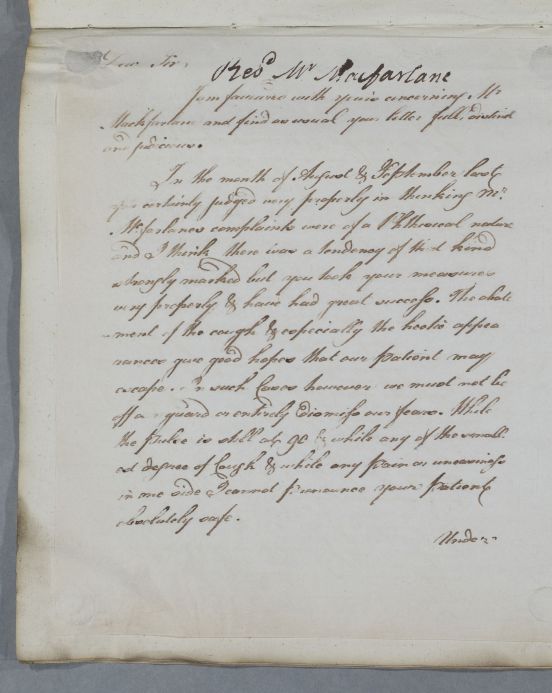 Dear Sir,
Revd Mr Macfarlane
I am favoured with yours concerning Mr
Mackfarlane and find as usual your letter full, distinct
and judicious.
In the month of August & September last
you certainly judged very properly in thinking Mr.
Mcfarlanes complaints were of a Phthisical nature
and I think there was a tendency of that kind
strongly marked but you took your measures
very properly & have had great success. The abate
ment of the cough & especially the hectic appea
rances give good hopes that our patient may
escape. In such Cases however we must not be
off a guard or entirely Dismiss our fears. While
the pulse is still at 90 & while any of the small
est degree of Cough & while any pain or uneasiness
in one side I cannot pronounce your patient
absolutely safe.
Under